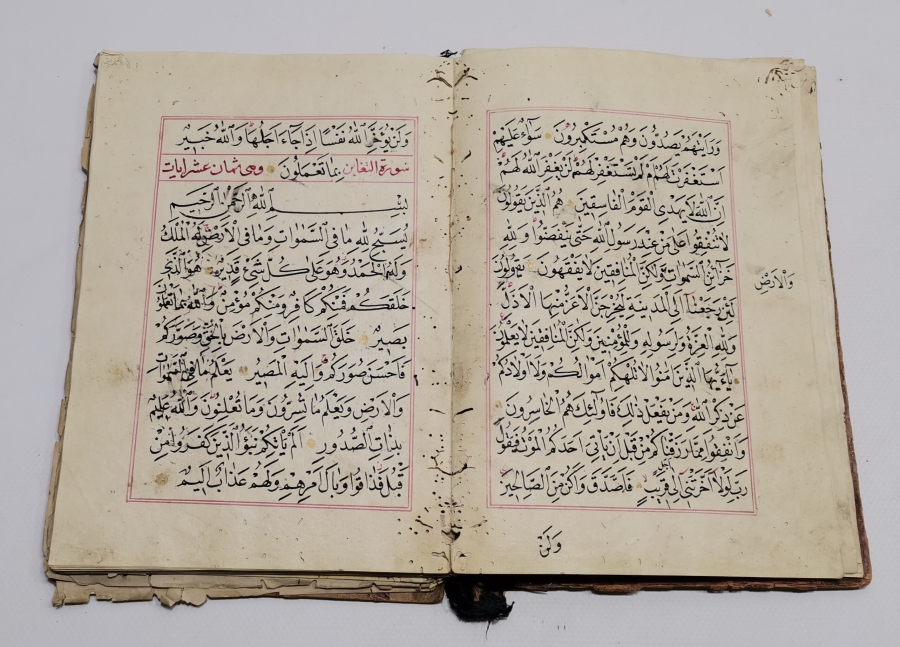 وَرَاَيْتَهُمْ يَصُدُّونَ وَهُمْ مُسْتَكْبِرُونَ سَوَآءٌ عَلَيْهِمْ
اَسْتَغْفَرْتَ لَهُمْ اَمْ لَمْ تَسْتَغْفِرْ لَهُمْ لَنْ يَغْفِرَ اللهُ لَهُمْ
اِنَّ اللهَ لَا يَهْدِى الْقَوْمَ الْفَاسِقِينَ هُمُ الَّذِينَ يَقُولُونَ
لَا تُنْفِقُوا عَلَى مَنْ عِنْدَ رَسُولِ اللهِ حَتَّى يَنْفَضُّوا وَلِلّهِ
خَزَآئِنُ السَّمٰوَاتِ وَلكِنَّ الْمُنَافِقِينَ لَا يَفْقَهُونَ يَقُولُونَ
وَالْاَرْضِ
لَئِنْ رَجَعْنَا اِلَى الْمَدِينَةِ لَيُخْرِجَنَّ الْاَعَزُّ مِنْهَا الْاَذَلَّ
وَلِلّهِ الْعِزَّةُ وَلِرَسُولِهِ وَلِلْمُؤْمِنِينَ وَلكِنَّ الْمُنَافِقِينَ لَا يَعْلَمُونَ
يَآءَيُّهَا الَّذِينَ اٰمَنُوا لَا تُلْهِكُمْ اَمْوَالُكُمْ وَلَا اَوْلَادُكُمْ
عَنْ ذِكْرِ اللهِ وَمَنْ يَفْعَلْ ذٰلِكَ فَاُولٰئِكَ هُمُ الْخَاسِرُونَ
وَاَنْفِقُوا مِمَّا رَزَقْنَاكُمْ مِنْ قَبْلِ اَنْ يَاْتِىَ اَحَدَكُمُ الْمَوْتُ فَيَقُولَ
رَبِّ لَوْلَا اَخَّرْتَنِى اِلَى اَجَلٍ قَرِيبٍ فَاَصَّدَّقَ وَاَكُنْ مِنَ الصَّالِحِينَ
وَلَنْ
وَلَنْ يُؤَخِّرَ اللهُ نَفْسًا اِذَا جَآءَ اَجَلُهَا وَاللهُ خَبِيرٌ
بِمَا تَعْمَلُونَ سورة التغابن وهى ثمان عشر ايات
بِسْمِ اللهِ الرَّحْمٰنِ الرَّحِيمِ
يُسَبِّحُ لِلّهِ مَا فِى السَّمٰوَاتِ وَمَا فِى الْاَرْضِ لَهُ الْمُلْكُ
وَلَهُ الْحَمْدُ وَهُوَ عَلَى كُلِّ شَىْءٍ قَدِيرٌ هُوَ الَّذِى
خَلَقَكُمْ فَمِنْكُمْ كَافِرٌ وَمِنْكُمْ مُؤْمِنٌ وَاللهُ بِمَا تَعْمَلُونَ
بَصِيرٌ خَلَقَ السَّمٰوَاتِ وَالْاَرْضَ بِالْحَقِّ وَصَوَّرَكُمْ
فَاَحْسَنَ صُوَرَكُمْ وَاِلَيْهِ الْمَصِيرُ يَعْلَمُ مَا فِى السَّمٰوَاتِ
وَالْاَرْضِ وَيَعْلَمُ مَا تُسِرُّونَ وَمَا تُعْلِنُونَ وَاللهُ عَلِيمٌ
بِذَاتِ الصُّدُورِ اَلَمْ يَاْتِكُمْ نَبَؤُا الَّذِينَ كَفَرُوا مِنْ
قَبْلُ فَذَاقُوا وَبَالَ اَمْرِهِمْ وَلَهُمْ عَذَابٌ اَلِيمٌ